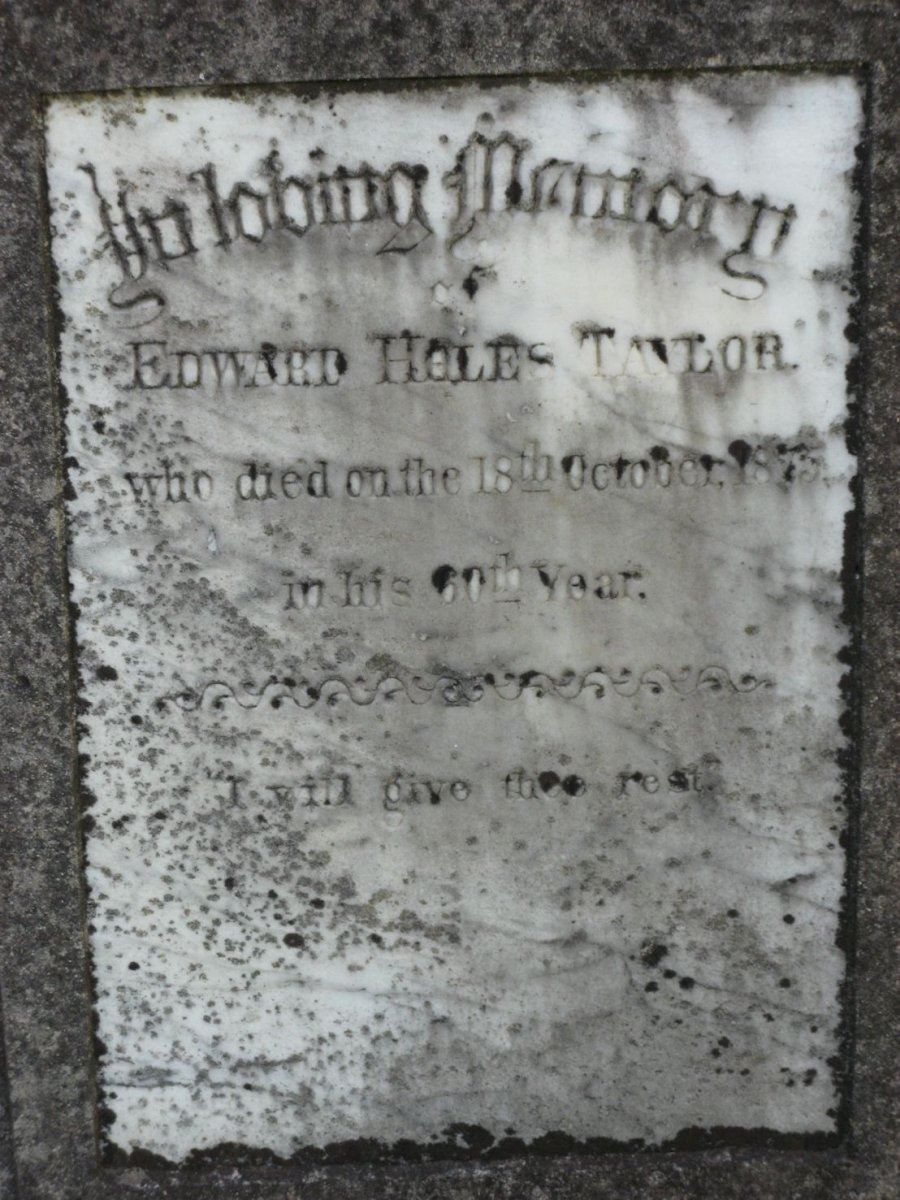 In loving Memory
of
EDWARD HALES TAYLOR.
who died on the 18th October, 1875,
in his 60th Year.
"I will give thee rest."